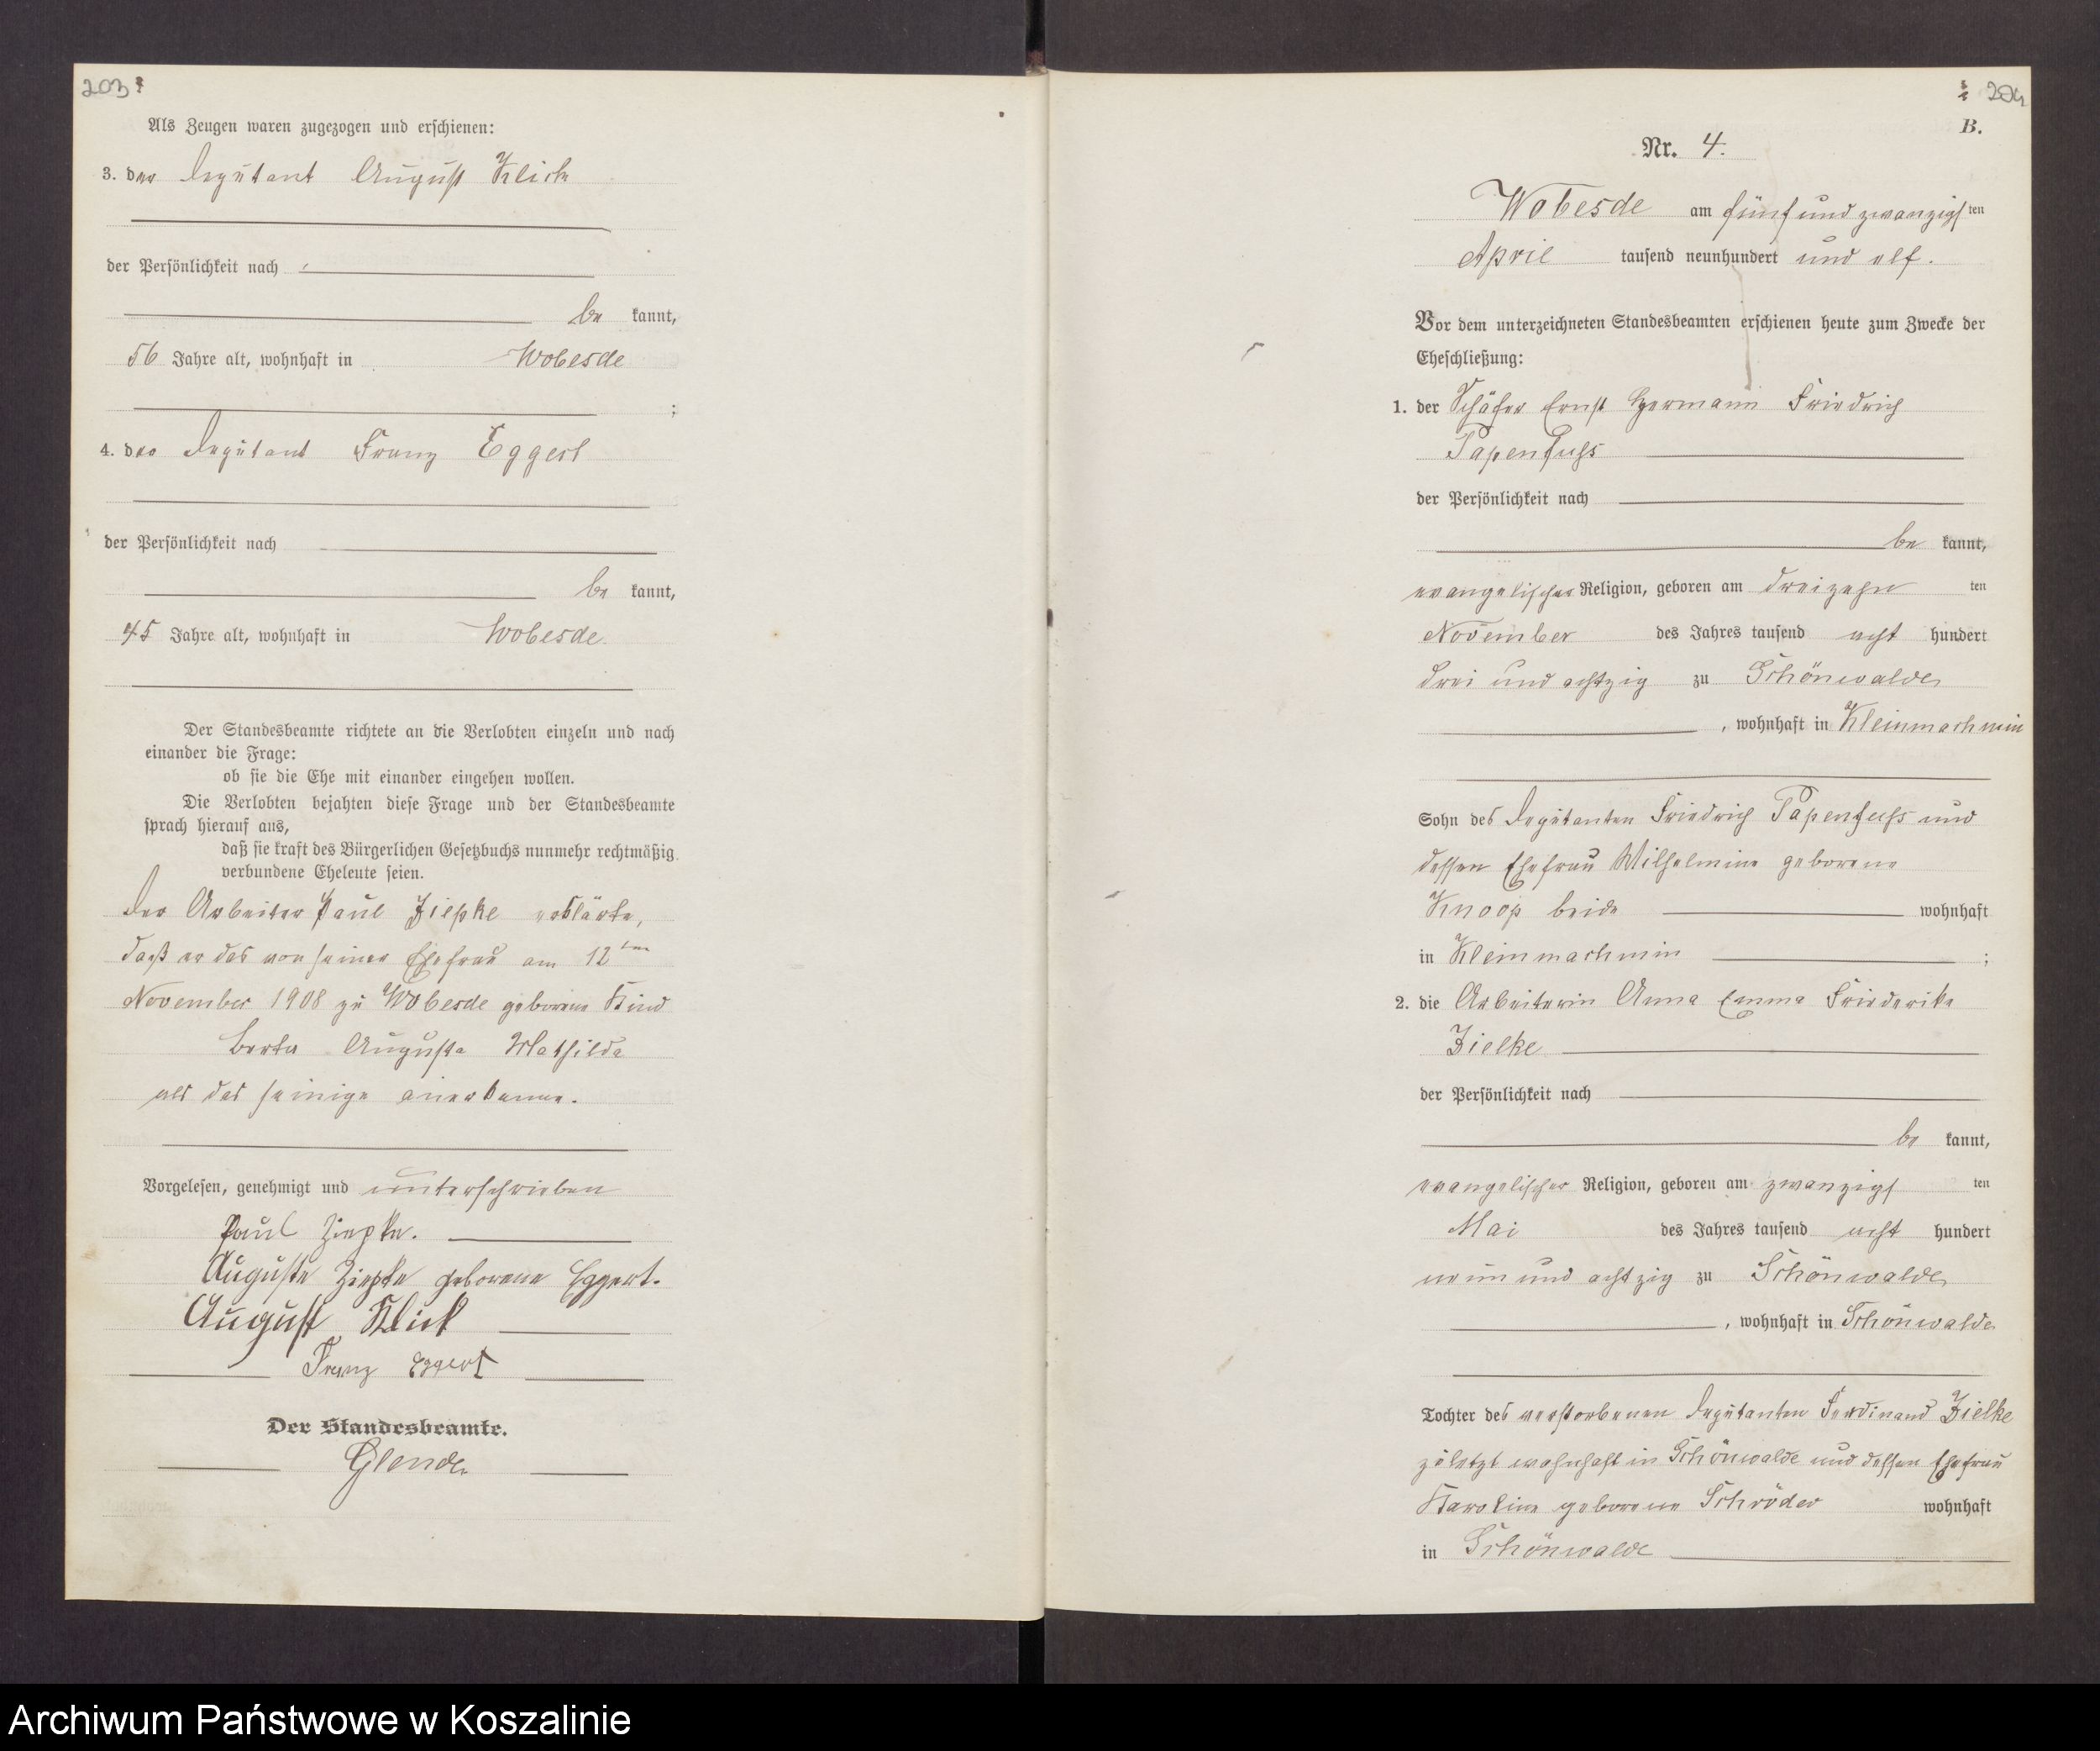 203
Als Zeugen waren zugezogen und erschienen:
3. der Deputant August Klick
der Persönlichkeit nach
be kannt,
56 Jahre alt, wohnhaft in Wobesde
;
4. der Deputant Franz Eggert
der Persönlichkeit nach
be kannt,
45 Jahre alt, wohnhaft in Wobesde
Der Standesbeamte richtete an die Verlobten einzeln und nach
einander die Frage:
ob sie die Ehe mit einander eingehen wollen.
Die Verlobten bejahten diese Frage und der Standesbeamte
sprach hierauf aus,
daß sie kraft des Bürgerlichen Gesetzbuchs nunmehr rechtmäßig
verbundene Eheleute seien.
Der Arbeiter Paul Ziepke erklärte,
daß er das von seiner Ehefrau am 12ten
November 1908 zu Wobesde geborene Kind
Berta Auguste Mathilde
als das seinige anerkenne.
Vorgelesen, genehmigt und unterschrieben
Paul Ziepke.
Auguste Ziepke geborene Eggert.
August Klick
Franz Eggert
Der Standesbeamte.
Glende
204
B.
Nr. 4.
Wobesde am fünf und zwanzigsten
April tausend neunhundert und elf.
Vor dem unterzeichneten Standesbeamten erschienen heute zum Zwecke der
Eheschließung:
1. der Schäfer Ernst Hermann Friedrich
Papenfuß
der Persönlichkeit nach
be kannt,
evangelischer Religion, geboren am dreizehn ten
November des Jahres tausend acht hundert
drei und achtzig zu Schönwalde
, wohnhaft in Kleinmachmin
Sohn des Deputanten Friedrich Papenfuß und
dessen Ehefrau Wilhelmine geborene
Knoop beide wohnhaft
in Kleinmachmin ;
2. die Arbeiterin Anna Emma Friederike
Zielke
der Persönlichkeit nach
be kannt,
evangelischer Religion, geboren am zwanzigs ten
Mai des Jahres tausend acht hundert
neun und achtzig zu Schönwalde
, wohnhaft in Schönwalde
Tochter des verstorbenen Deputanten Ferdinand Zielke
zuletzt wohnhaft in Schönwalde und dessen Ehefrau
Karoline geborene Schröder wohnhaft
in Schönwalde
Archiwum Państwowe w Koszalinie